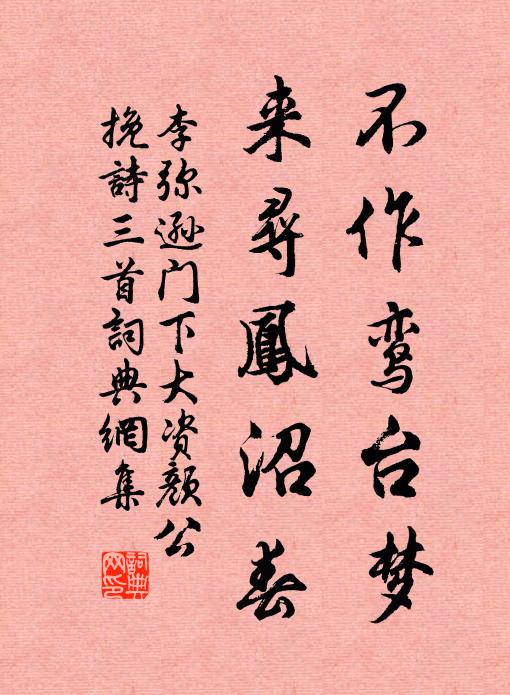 不作鸾台梦
来寻鳳沼春
李弥遜门下大资颜公
挽詩三首詞典網集
詞典
网印